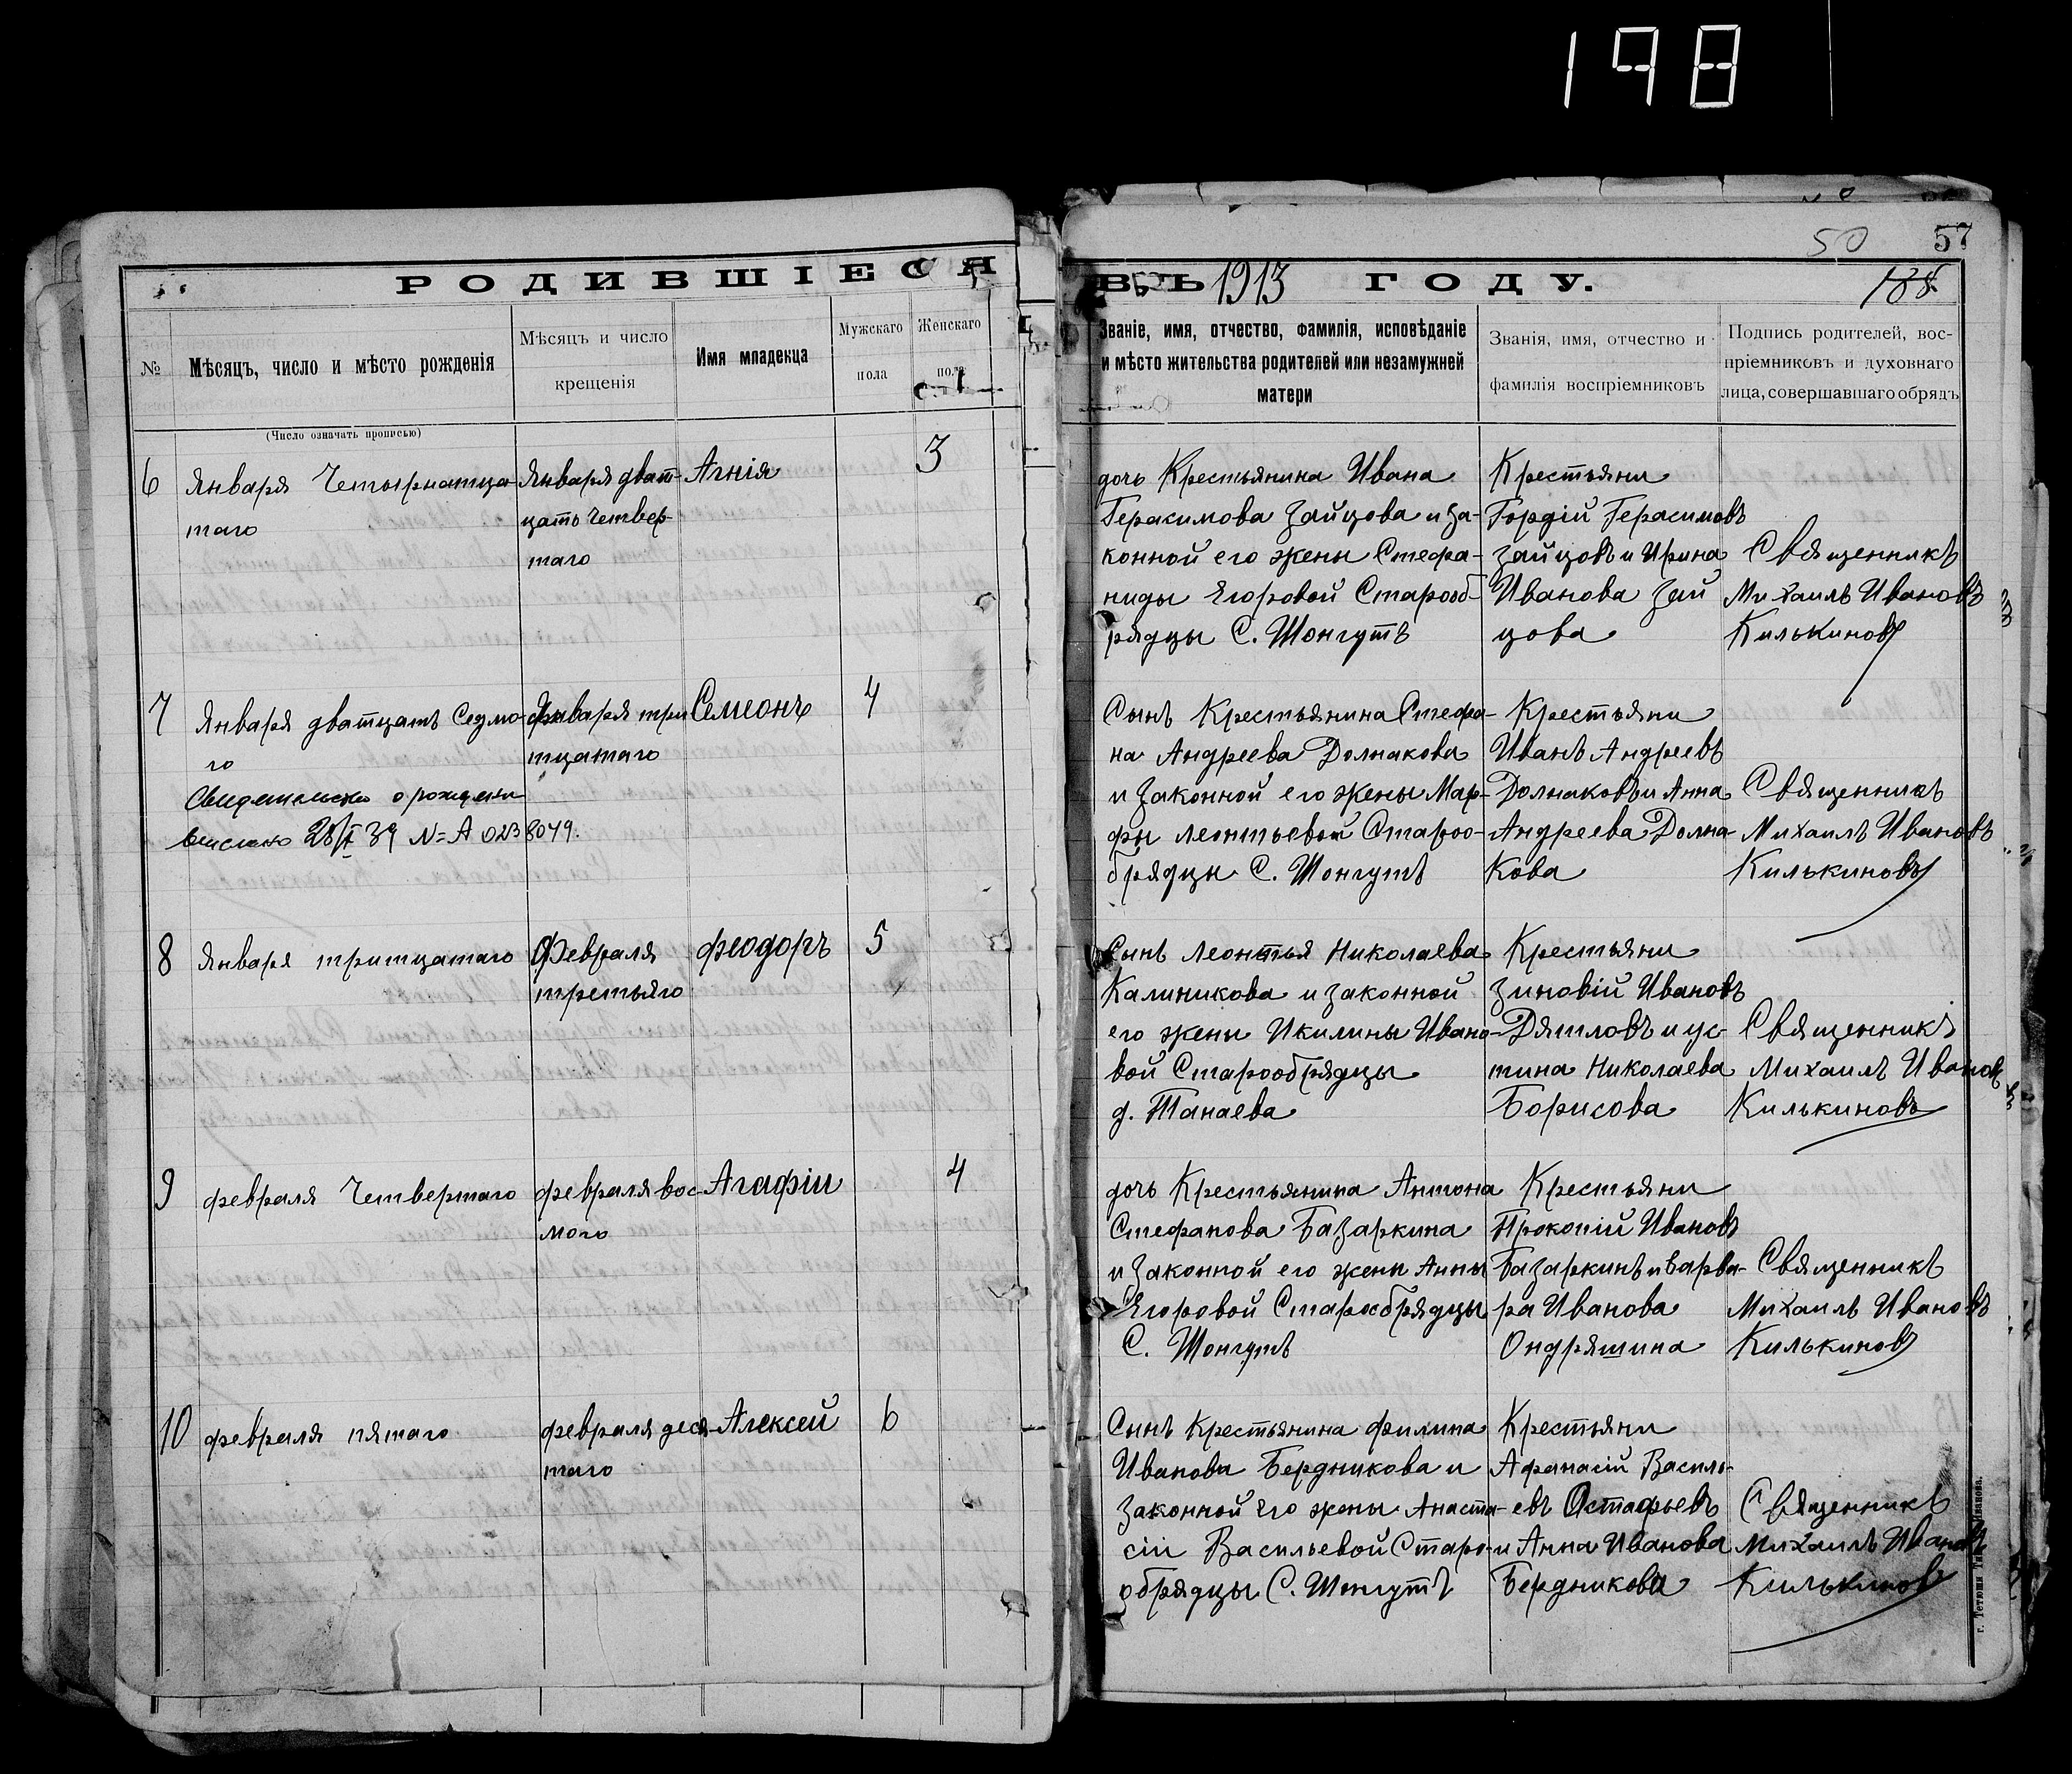 198
50 57
РОДИВШІЕСЯ ВЪ 1913 ГОДУ.
188
№
Мѣсяцъ, число и мѣсто рожденія
Мѣсяцъ и число
крещенія
Имя младенца
Мужскаго
пола
Женскаго
пола
Званіе, имя, отчество, фамилія, исповѣданіе
и мѣсто жительства родителей или незамужней
матери
Званія, имя, отчество и
фамилія воспріемниковъ
Подпись родителей, вос-
пріемниковъ и духовнаго
лица, совершавшаго обрядъ
(Число означать прописью)
6
Января Четырнатца-
таго
Января дват-
цать Четвер-
таго
Агнія
3
дочь Крестьянина Ивана
Герасимова Зайцова и за-
конной его жены Стефа-
ниды Егоровой Старооб-
рядцы С. Шонгутъ
Крестьяни
Гордій Герасимовъ
Зайцовъ и Ирина
Иванова Зай
цова
Священникъ
Михаилъ Ивановъ
Килькиновъ
7
Января дватцать Седмо-
го
Свидетельство о рождении
выслано 28/I 39 № А 0238049.
Января три
тцатаго
Семионъ
4
Сынъ Крестьянина Стефа-
на Андреева Долнакова
и Законной его жены Мар-
фы Леонтьевой Староо-
брядцы С. Шонгутъ
Крестьяни
Иванъ Андреевъ
Долнаковъ и Анна
Андреева Долна-
Кова
Священникъ
Михаилъ Ивановъ
Килькиновъ
8
Января тритцатаго
Февраля
третьяго
Феодоръ
5
Сынъ Леонтья Николаева
Калиникова и законной
его жены Икилины Ивано-
вой Старообрядцы
д. Танаева
Крестьяни
Зиновій Ивановъ
Дятловъ и ус-
тина Николаева
Борисова
Священникъ
Михаилъ Ивановъ
Килькиновъ
9
февраля Четвертаго
февраля вос-
мого
Агафіи
4
дочь Крестьянина Антона
Стефанова Базаркина
и Законной его жены Анны
Егоровой Старообрядцы
С. Шонгутъ
Крестьяни
Прокопій Ивановъ
Базаркинъ и Варва-
ра Иванова
Ондряшина
Священникъ
Михаилъ Ивановъ
Килькиновъ
10
февраля пятаго
февраля деся-
таго
Алексей
6
Сынъ Крестьянина филипа
Иванова Бердникова и
Законной его жены Анаста-
сіи Васильевой Старо-
обрядцы С. Шонгутъ
Крестьяни
Афанасій Василь-
евъ Остафьевъ
и Анна Иванова
Бердникова
Священникъ
Михаилъ Ивановъ
Килькиновъ